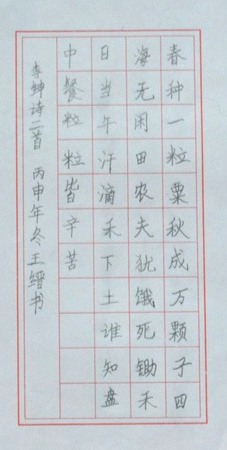 春种一粒粟秋成万颗子四
海无闲田农夫犹饿死锄禾
日当午汗滴禾下土谁知盘
中餐粒粒皆辛苦
李绅诗二首 丙申年冬王缙书